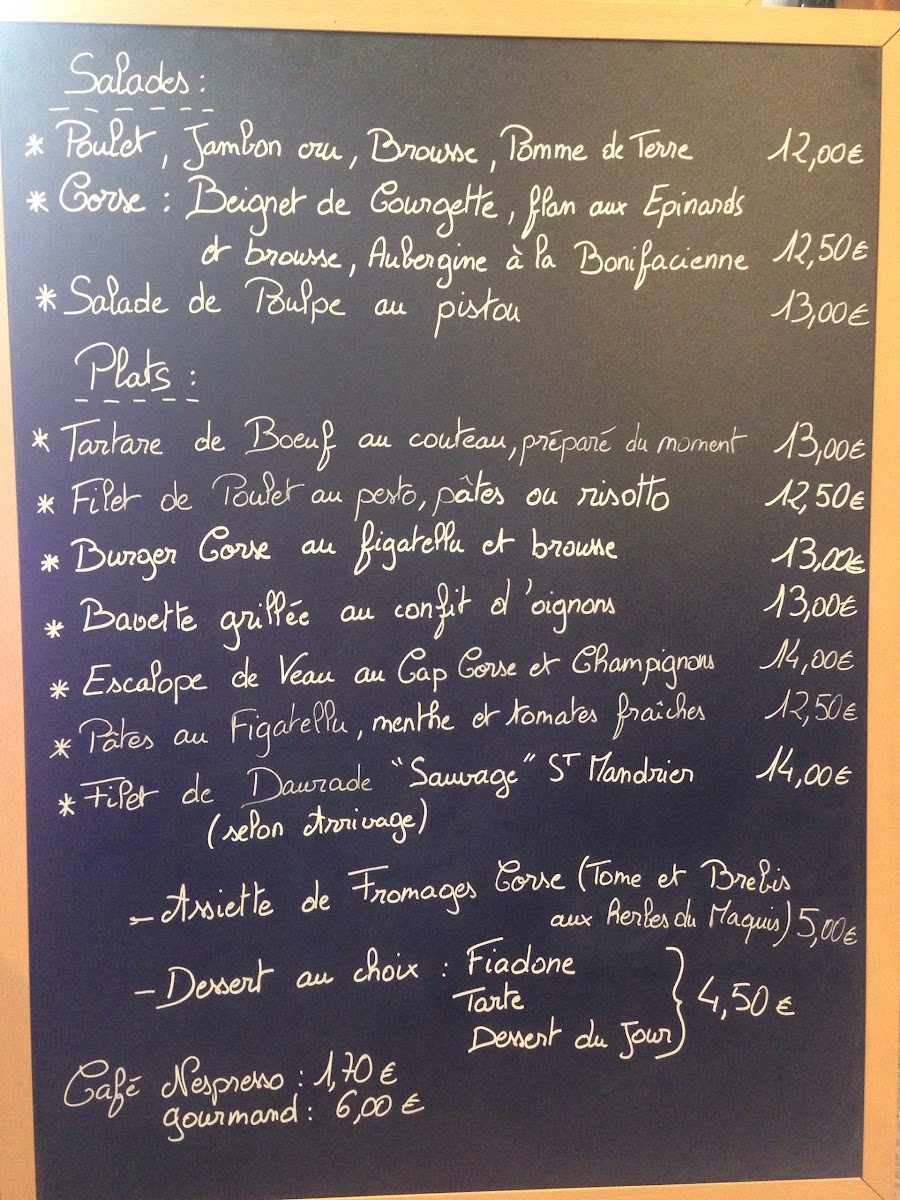 Salades :
* Poulet, Jambon cru, Brousse, Pomme de Terre 12,00€
* Corse : Beignet de Courgette, flan aux Epinards
et brousse, Aubergine à la Bonifacienne 12,50€
* Salade de Poulpe au pistou 13,00€
Plats :
* Tartare de Boeuf au couteau, préparé du moment 13,00€
* Filet de Poulet au pesto, pâtes ou risotto 12,50€
* Burger Corse au figatellu et brousse 13,00€
* Bavette grillée au confit d'oignons 13,00€
* Escalope de Veau au Cap Corse et Champignons 14,00€
* Pâtes au Figatellu, menthe et tomates fraîches 12,50€
* Filet de Daurade "Sauvage" ST Mandrier 14,00€
(selon Arrivage)
- Assiette de Fromages Corse (Tome et Brebis
aux herbes du Maquis) 5,00€
- Dessert au choix : Fiadone
Tarte
Dessert du Jour } 4,50€
Café Nespresso : 1,70€
gourmand : 6,00€